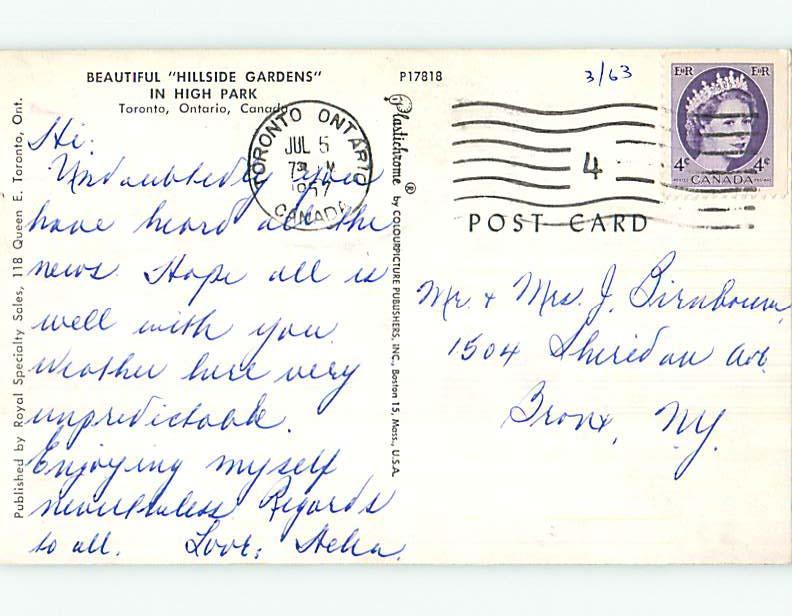 BEAUTIFUL "HILLSIDE GARDENS"
IN HIGH PARK
Toronto, Ontario, Canada
P17818
3/63
TORONTO ONTARIO
JUL 5
1957
CANADA
4
EIIR EIIR
4¢ 4¢
CANADA
POST CARD
Published by Royal Specialty Sales, 118 Queen E. Toronto, Ont.
Plastichrome ® by COLOURPICTURE PUBLISHERS, INC., Boston 15, Mass., U.S.A.
Hi:
Undoubtedly you
have heard all the
news. Hope all is
well with you.
Weather here very
unpredictable.
Enjoying myself
nevertheless Regards
to all. Love,
Mr. + Mrs. J. Birnbaum
1504 Sheridan Ave.
Bronx, NY.